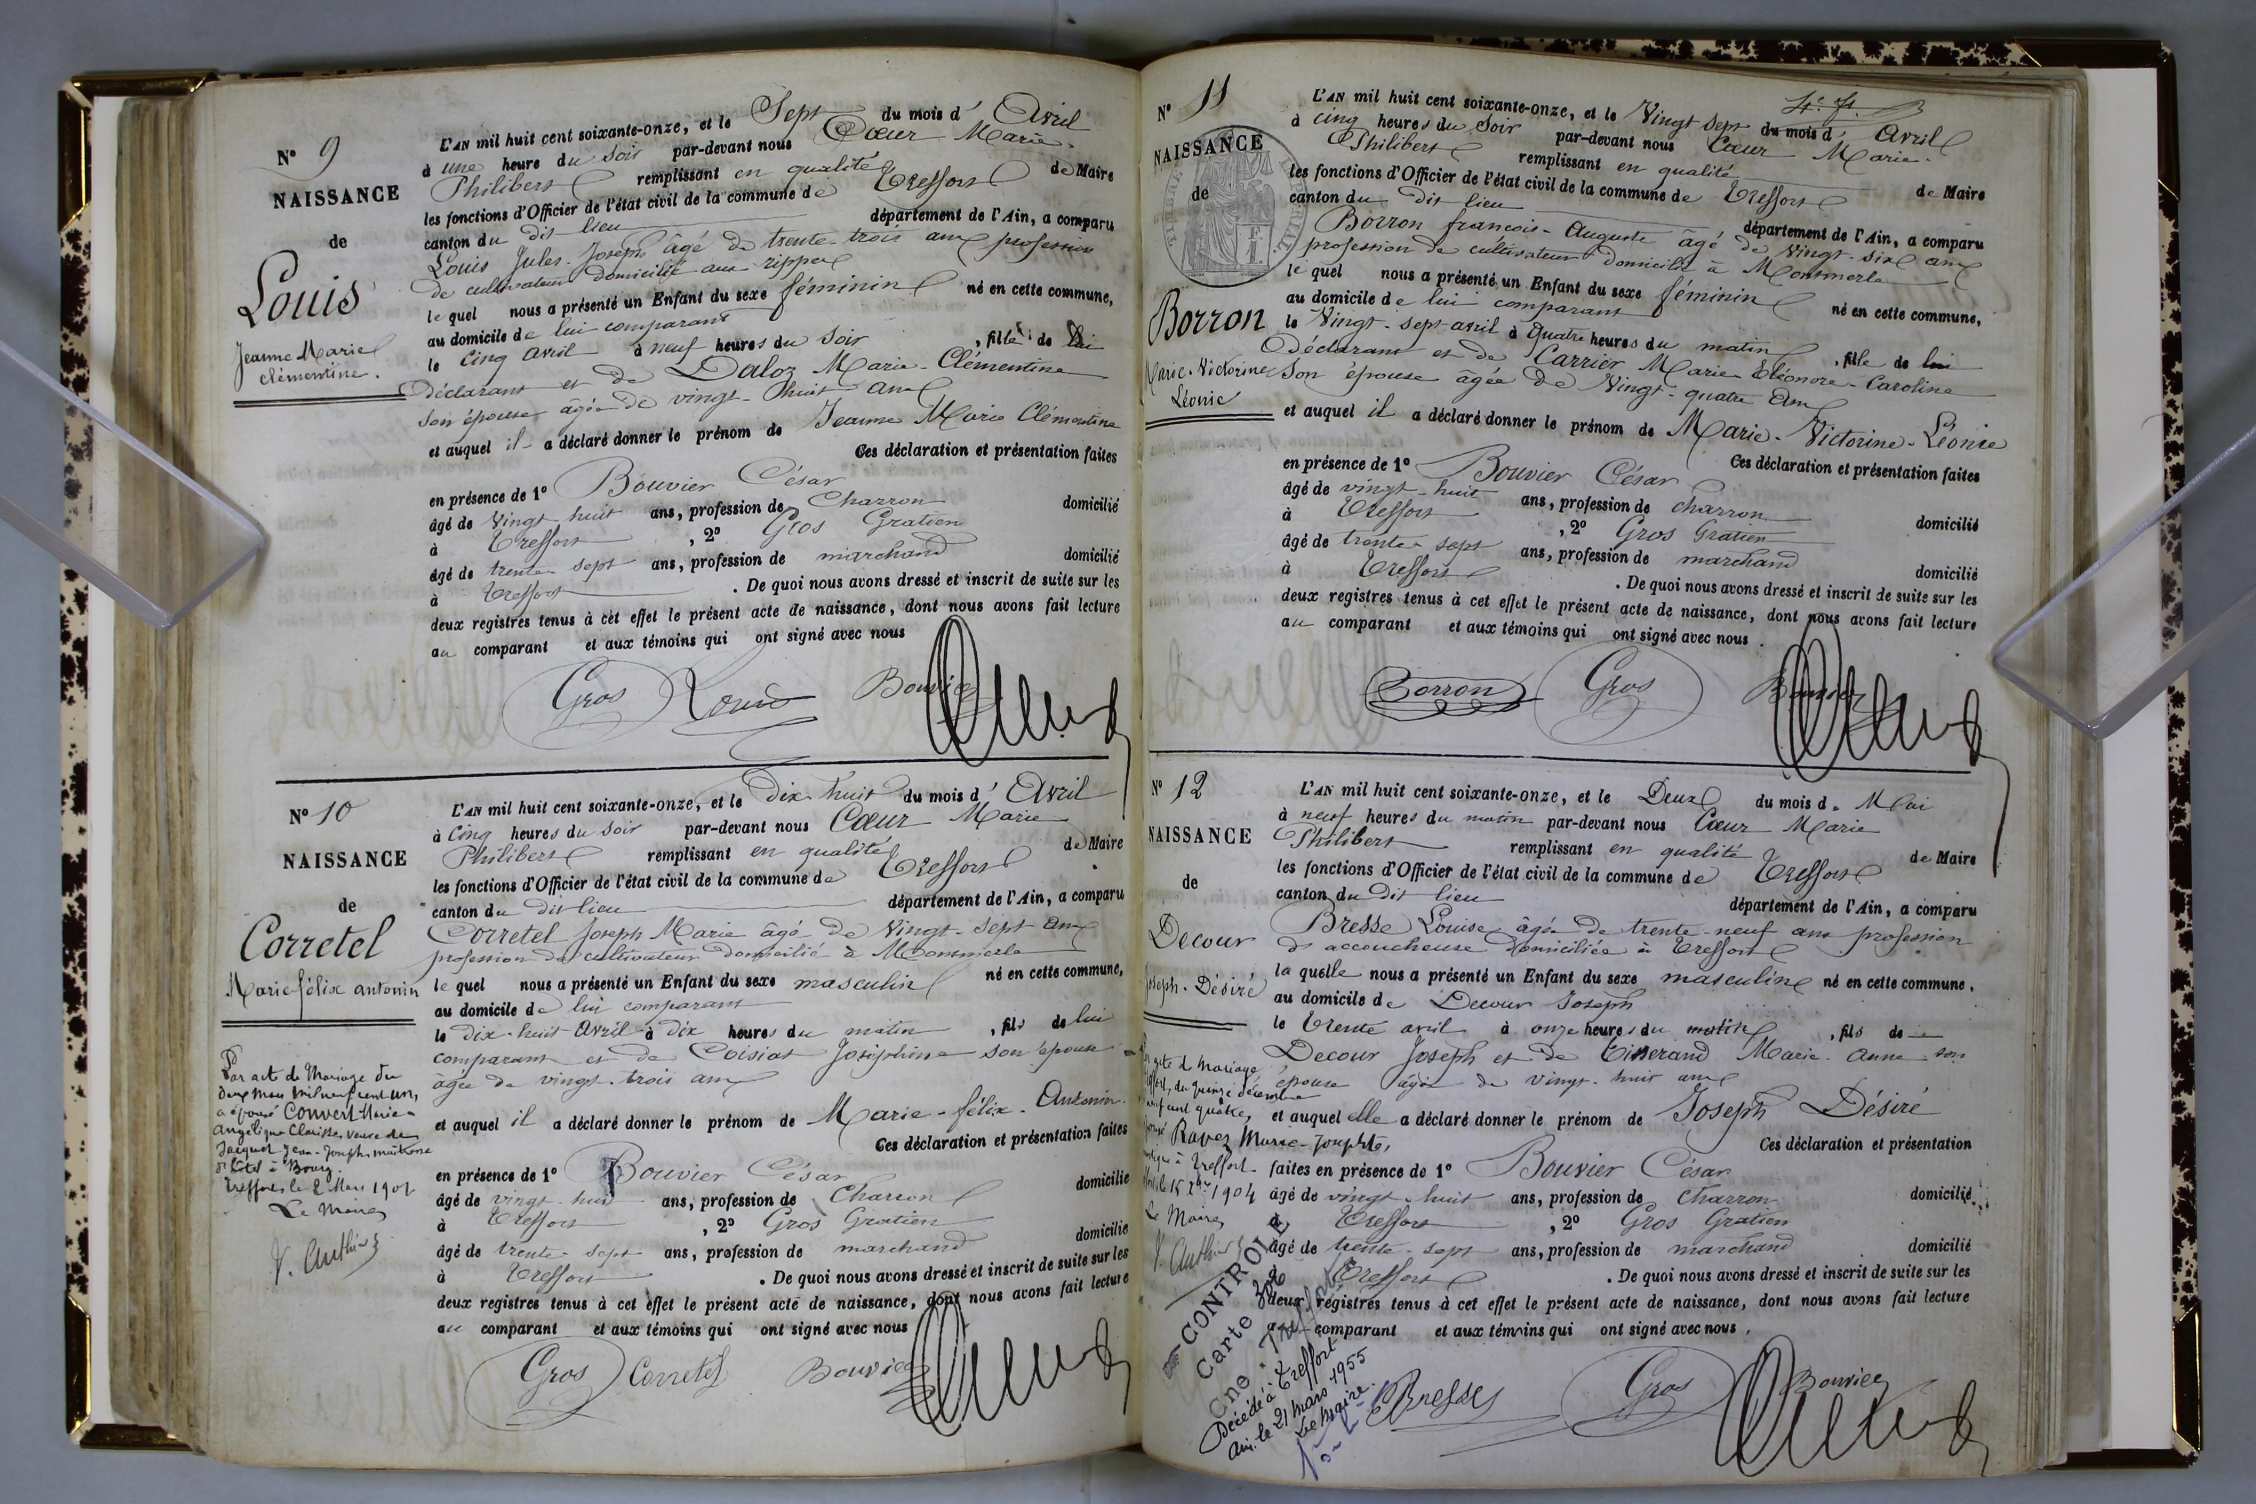 N° 9
NAISSANCE
de
Louis
Jeanne Marie
Clémentine.
L'AN mil huit cent soixante-onze, et le Sept du mois d' Avril
à une heure du Soir par-devant nous Cœur Marie
Philibert remplissant en qualité de Maire
les fonctions d'Officier de l'état civil de la commune de Treffort
canton du dit lieu département de l'Ain, a comparu
Louis Jules-Joseph âgé de trente-trois ans profession
de cultivateur domicilié aux rippes
le quel nous a présenté un Enfant du sexe féminin né en cette commune,
au domicile de lui comparant
le Cinq avril à neuf heures du Soir, fille de lui
Déclarant et de Daloz Marie-Clémentine
son épouse âgée de vingt-huit ans
et auquel il a déclaré donner le prénom de Jeanne Marie Clémentine
Ces déclaration et présentation faites
en présence de 1° Bouvier César
âgé de vingt huit ans, profession de Charron domicilié
à Treffort, 2° Gros Gratien
âgé de trente-sept ans, profession de marchand domicilié
à Treffort. De quoi nous avons dressé et inscrit de suite sur les
deux registres tenus à cet effet le présent acte de naissance, dont nous avons fait lecture
au comparant et aux témoins qui ont signé avec nous
Gros Louis Bouvier
N° 10
NAISSANCE
de
Corretel
Marie félix antonin
Par acte de Mariage du
deux Mars mil neuf cent un,
a épousé Convert Marie-
Angélique Clarisse, veuve de
Jacquet Jean-Joseph, maîtresse
d'hôtel à Bourg.
Treffort, le 2 Mars 1901
Le Maire
L'AN mil huit cent soixante-onze, et le dix huit du mois d' Avril
à Cinq heures du Soir par-devant nous Cœur Marie
Philibert remplissant en qualité de Maire
les fonctions d'Officier de l'état civil de la commune de Treffort
canton du dit lieu département de l'Ain, a comparu
Corretel Joseph Marie âgé de Vingt-Sept ans
profession de cultivateur domicilié à Montmerle
le quel nous a présenté un Enfant du sexe masculin né en cette commune,
au domicile de lui comparant
le dix-huit Avril à dix heures du matin, fils de lui
comparant et de Coisiat Joséphine son épouse
âgée de vingt-trois ans
et auquel il a déclaré donner le prénom de Marie-félix-Antonin
Ces déclaration et présentation faites
en présence de 1° Bouvier César
âgé de vingt-huit ans, profession de Charron domicilié
à Treffort, 2° Gros Gratien
âgé de trente-sept ans, profession de marchand domicilié
à Treffort. De quoi nous avons dressé et inscrit de suite sur les
deux registres tenus à cet effet le présent acte de naissance, dont nous avons fait lecture
au comparant et aux témoins qui ont signé avec nous
Gros Corretel Bouvier
N° 11
NAISSANCE
de
Borron
Marie-Victorine
Léonie
L'AN mil huit cent soixante-onze, et le Vingt sept du mois d' Avril
à cinq heures du Soir par-devant nous Cœur Marie
Philibert remplissant en qualité de Maire
les fonctions d'Officier de l'état civil de la commune de Treffort
canton du dit lieu département de l'Ain, a comparu
Borron francois-Auguste âgé de Vingt-six ans
profession de cultivateur domicilié à Montmerle
le quel nous a présenté un Enfant du sexe féminin né en cette commune,
au domicile de lui comparant
le Vingt-sept avril à Quatre heures du matin, fille de lui
déclarant et de Carrier Marie Eléonore-Caroline
Son épouse âgée de Vingt-quatre ans
et auquel il a déclaré donner le prénom de Marie-Victorine-Léonie
Ces déclaration et présentation faites
en présence de 1° Bouvier César
âgé de vingt-huit ans, profession de charron domicilié
à Treffort, 2° Gros Gratien
âgé de trente-sept ans, profession de marchand domicilié
à Treffort. De quoi nous avons dressé et inscrit de suite sur les
deux registres tenus à cet effet le présent acte de naissance, dont nous avons fait lecture
au comparant et aux témoins qui ont signé avec nous.
Borron Gros Bouvier
N° 12
NAISSANCE
de
Decour
Joseph-Désiré
acte de Mariage
du quinze décembre
neuf cent quatre,
Ravez Marie-Josephte,
à Treffort
1904
Le Maire
CONTROLE
Carte 302
Cne : Treffort
Décédé à Treffort
Ain. le 21 mars 1955
Le Maire.
L'AN mil huit cent soixante-onze, et le Deux du mois de Mai
à neuf heures du matin par-devant nous Cœur Marie
Philibert remplissant en qualité de Maire
les fonctions d'Officier de l'état civil de la commune de Treffort
canton du dit lieu département de l'Ain, a comparu
Bresse Louise âgée de trente-neuf ans profession
d'accoucheuse domiciliée à Treffort
la quelle nous a présenté un Enfant du sexe masculin né en cette commune,
au domicile de Decour Joseph
le trente avril à onze heures du matin, fils de
Decour Joseph et de Tisserand Marie-anne son
épouse âgée de vingt-huit ans
et auquel elle a déclaré donner le prénom de Joseph Désiré
Ces déclaration et présentation
faites en présence de 1° Bouvier César
âgé de vingt-huit ans, profession de Charron domicilié
à Treffort, 2° Gros Gratien
âgé de trente-sept ans, profession de marchand domicilié
à Treffort. De quoi nous avons dressé et inscrit de suite sur les
deux registres tenus à cet effet le présent acte de naissance, dont nous avons fait lecture
au comparant et aux témoins qui ont signé avec nous.
Bresse Gros Bouvier